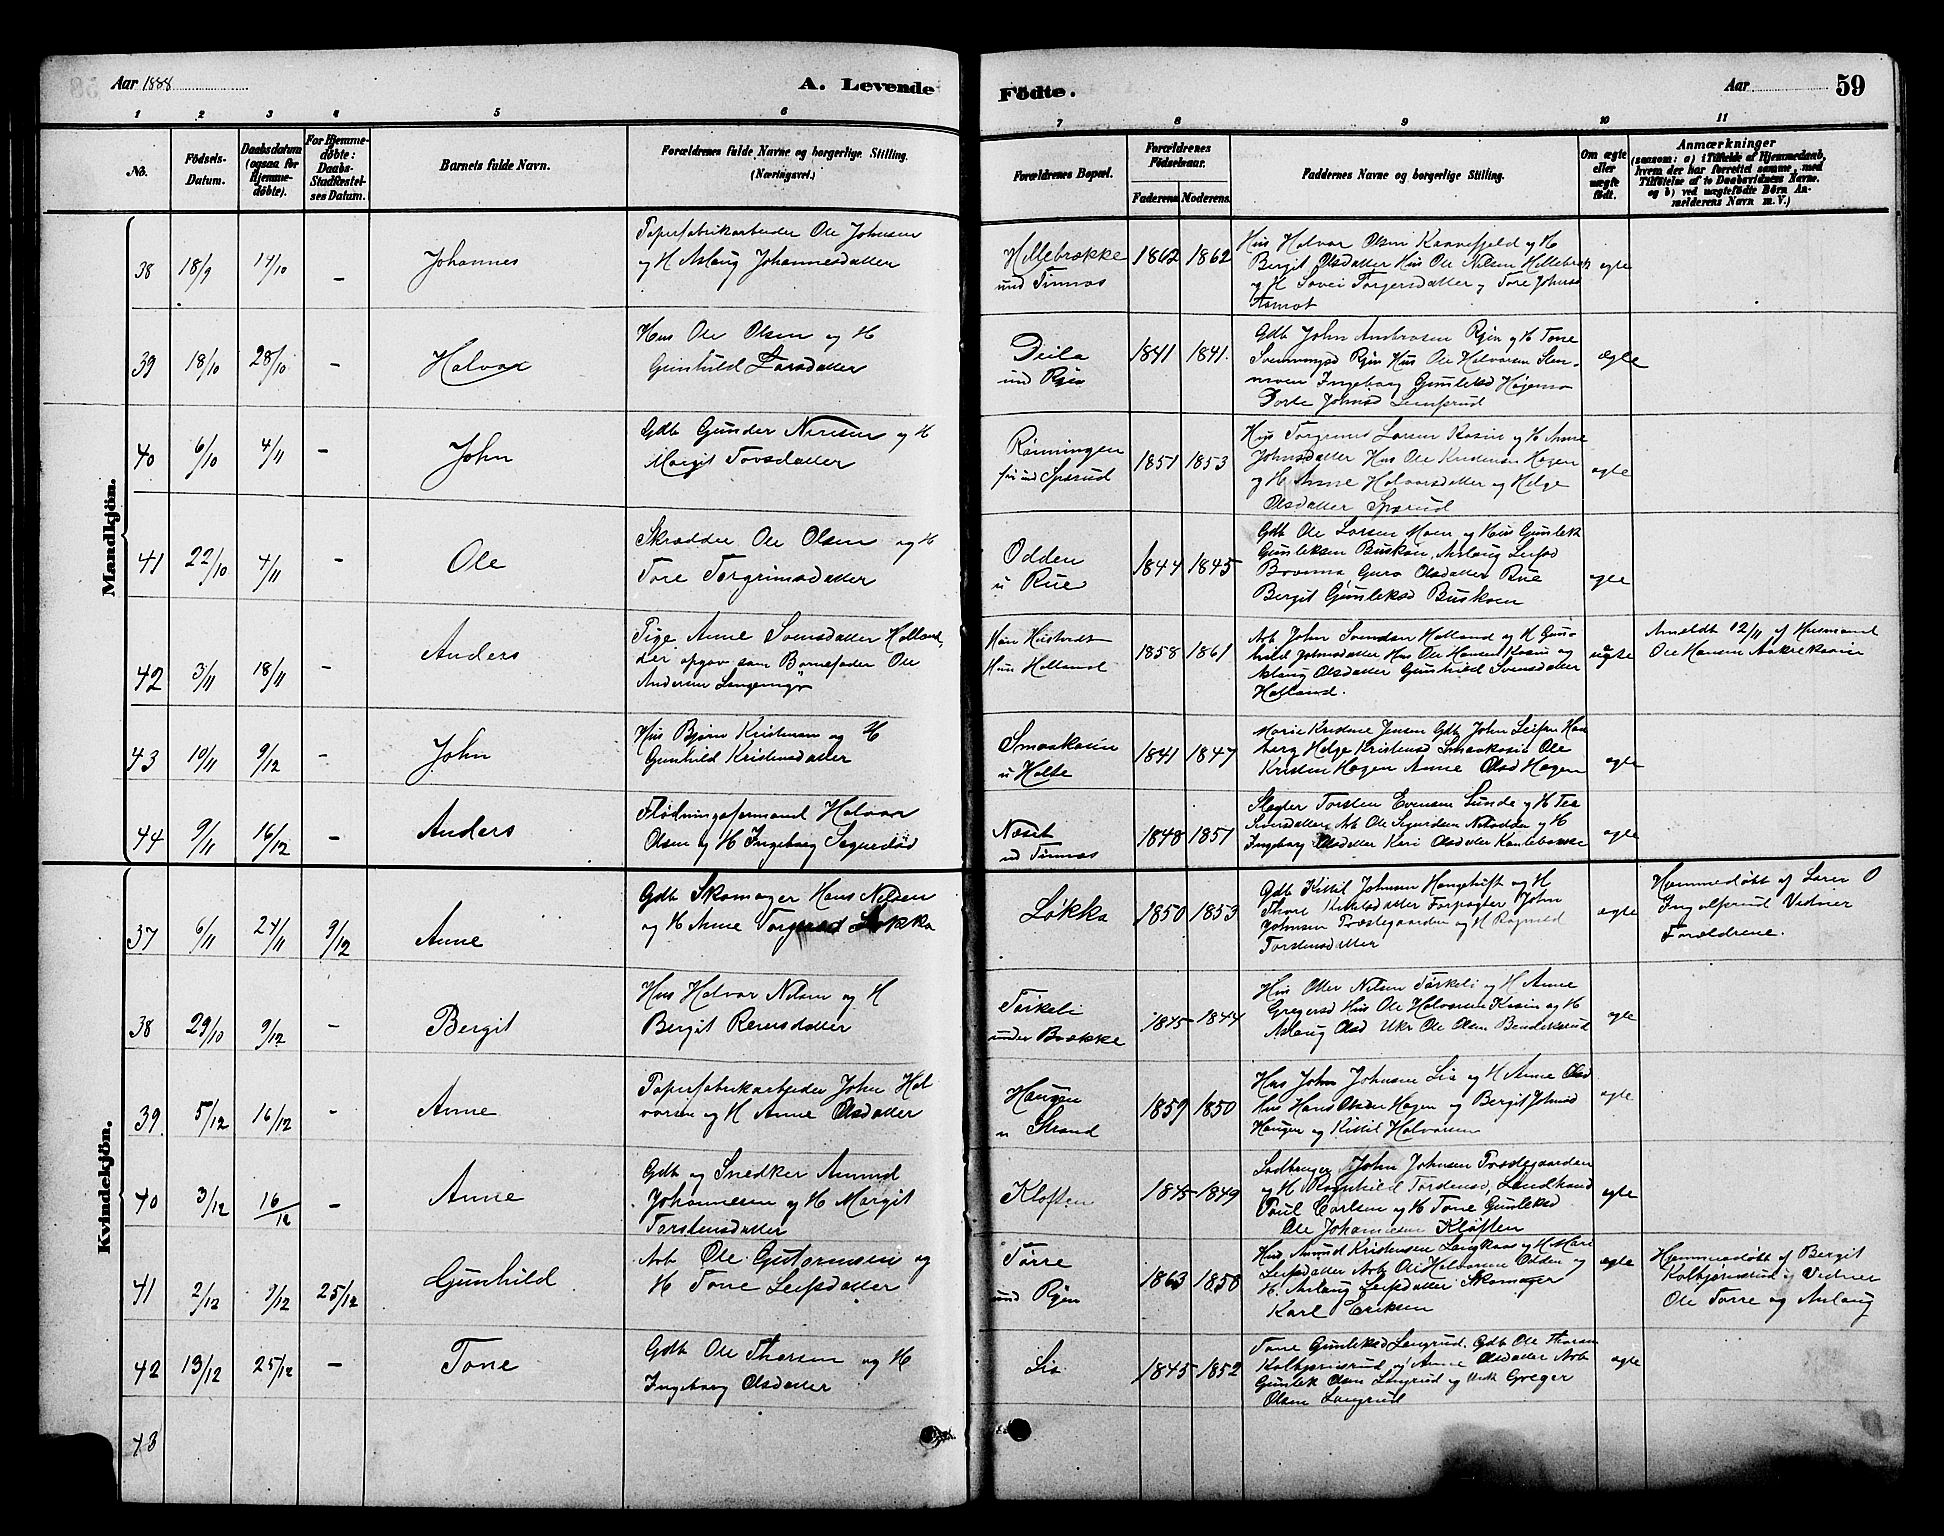 Aar 1888
A. Levende
Fødte.
Aar
59
1 2 3 4 5 6 7 8 9 10 11
No.
Födsels-
Datum.
Daabsdatum
(ogsaa for
Hjemme-
döbte).
For Hjemme-
døbte:
Daabs-
Stadfæstel-
ses Datum.
Barnets fulde Navn.
Forældrenes fulde Navne og borgerlige Stilling.
(Næringsvei.)
Forældrenes Bopæl.
Forældrenes
Födselsaar.
Faderens. Moderens.
Faddernes Navne og borgerlige Stilling.
Om ægte
eller
uægte
født.
Anmærkninger
(saasom: a) i Tilfælde af Hjemmedaab,
hvem der har forrettet samme, med
Tilføielse af to Daabsvidners Navne.
og b) ved uægtefødte Børn An-
melderens Navn m. V.)
Mandkjön.
38 18/9 14/10 - Johannes
Papirfabrikarbeider Ole Johnsen
og H Aslaug Johannesdatter
Hillebrække
und Tinnæs
1862 1862
Hus Halvor Olsen Kaavefjeld og H
Bergit Olsdatter Hus Ole Nilsen Hillebræk
og H Torgersdatter Tore Johnsd
ægte
39 18/10 28/10 - Halvor
Hus Ole Olsen og H
Gunhild Larsdatter
Deila
und Rjen
1841 1841.
Gdb John Ambrosen Rjen og H Tone
Rjen Hus Ole Halvorsen
Ingeborg Gunleksd
Dorte Johnsd
ægte
40 6/10 4/11 - John
Gdb Gunder Nirisen og H
Margit Tovsdatter
Rønningen
und Sperud
1851 1853
Hus Larsen og H Anne
Johnsdatter Hus Ole Kristensen Hagen
og H Anne Halvorsdatter og Helge
Olsdatter Sperud
ægte
41 22/10 4/11 - Ole
Skrædder Ole Olsen og H
Tore Torgrimsdatter
Odden
u Rue
1844 1845
Gdb Ole Larsen Moen og Hus Gunlek
Gunleksen Buskoen, Aslaug
Guro Olsdatter Rue
Bergit Gunleksd Buskoen
ægte
42 3/11 18/11 - Anders
Pige Anne Svensdatter Holland,
der opgav som Barnefader Ole
Andersen
Hun Holland
1858 1861
Arb John Svendsen Holland og H Gun-
hild Johnsdatter Hus Ole Hansen og
Aslaug Olsdatter Gunhild Svensdatter
Holland.
uægte
Anmeldt 12/11 af Husmand
Ole Hansen
43 10/11 9/12 - John
Hus Bjørn Kristensen og H
Gunhild Kristensdatter
Smaakasin
u Holte
1841 1847
Marie Kristine Jensen Gdb John
Helge Kristensd Smaakasin Ole
Kristen Hagen Anne Olsd Hagen
ægte
44 9/11 16/12 - Anders
Flødningsformand Halvor
Olsen og H Ingeborg
Næset
ud Tinnæs
1848 1851
Slagter Torsten Evensen Sunde og H
Arb Ole Sigurdsen Notodden og H
Ingeborg Olsdatter Kari Olsdatter
ægte
Kvindekjön.
37 6/11 24/11 9/12 Anne
Gdb Skomager Hans Nilsen
og H Anne Løkka
Løkka
1850 1853
Gdb Kittil Johnsen og H
Thone Kittilsdatter Forpagter John
Johnsen Prestegaarden og H Ragnild
Torstensdatter
ægte
Hjemmedøbt af Søren O
Ingolfsrud Vidner
Forældrene.
38 29/10 9/12 - Bergit
Hus Halvor Nilsen og H
Bergit Reiersdatter
Torkeli
under Brække
1845 1844
Hus Otter Nilsen Torkeli og H Anne
Gregersd Hus Ole Halvorsen og H
Aslaug Olsd Ukr Ole Olsen Bendiksrud
ægte
39 5/12 16/12 - Anne
Papirfabrikarbeider John Hal-
vorsen og H Anne Olsdatter
Haugen
u Strand
1859 1850
Hus John Johnsen Lia og H Anne Olsd
Hus Hans Olsen Hagen og Bergit Johnsd
Haugen og Kittil Halvorsen
ægte
40 3/12 16/12 - Anne
Gdb og Snedker Amund
Johannesen og H Margit
Torstensdatter
Kloften
1845 1849
John Johnsen Prestegaarden
og H Ragnhild Torstensd, Landhand
Poul Carlsen og H Tone Gunleksd
Ole Johannesen Kløften
ægte
41 2/12 9/12 25/12 Gunhild
Arb Ole Guttormsen og
H Tone Leifsdatter
Torre
und Rjen
1863 1858
Hus Amund Kristensen Langkaas og H Mari
Leifsdatter Arb Ole Halvorsen Odden og
H. Aslaug Leifsdatter Skomager
Karl Eriksen
ægte
Hjemmedøbt af Bergit
Kolbjørnsrud Vidner
Ole Torre og Aslaug
42 13/12 25/12 - Tone
Gdb Ole Thorsen og H
Ingeborg Olsdatter
Lia
1845 1852
Tone Gunleksd Langrud. Gdb Ole Thorsen
Kolbjørnsrud og Anne Olsdatter Arb
Gunlek Olsen Langrud og Greger
Olsen Langrud
ægte
43